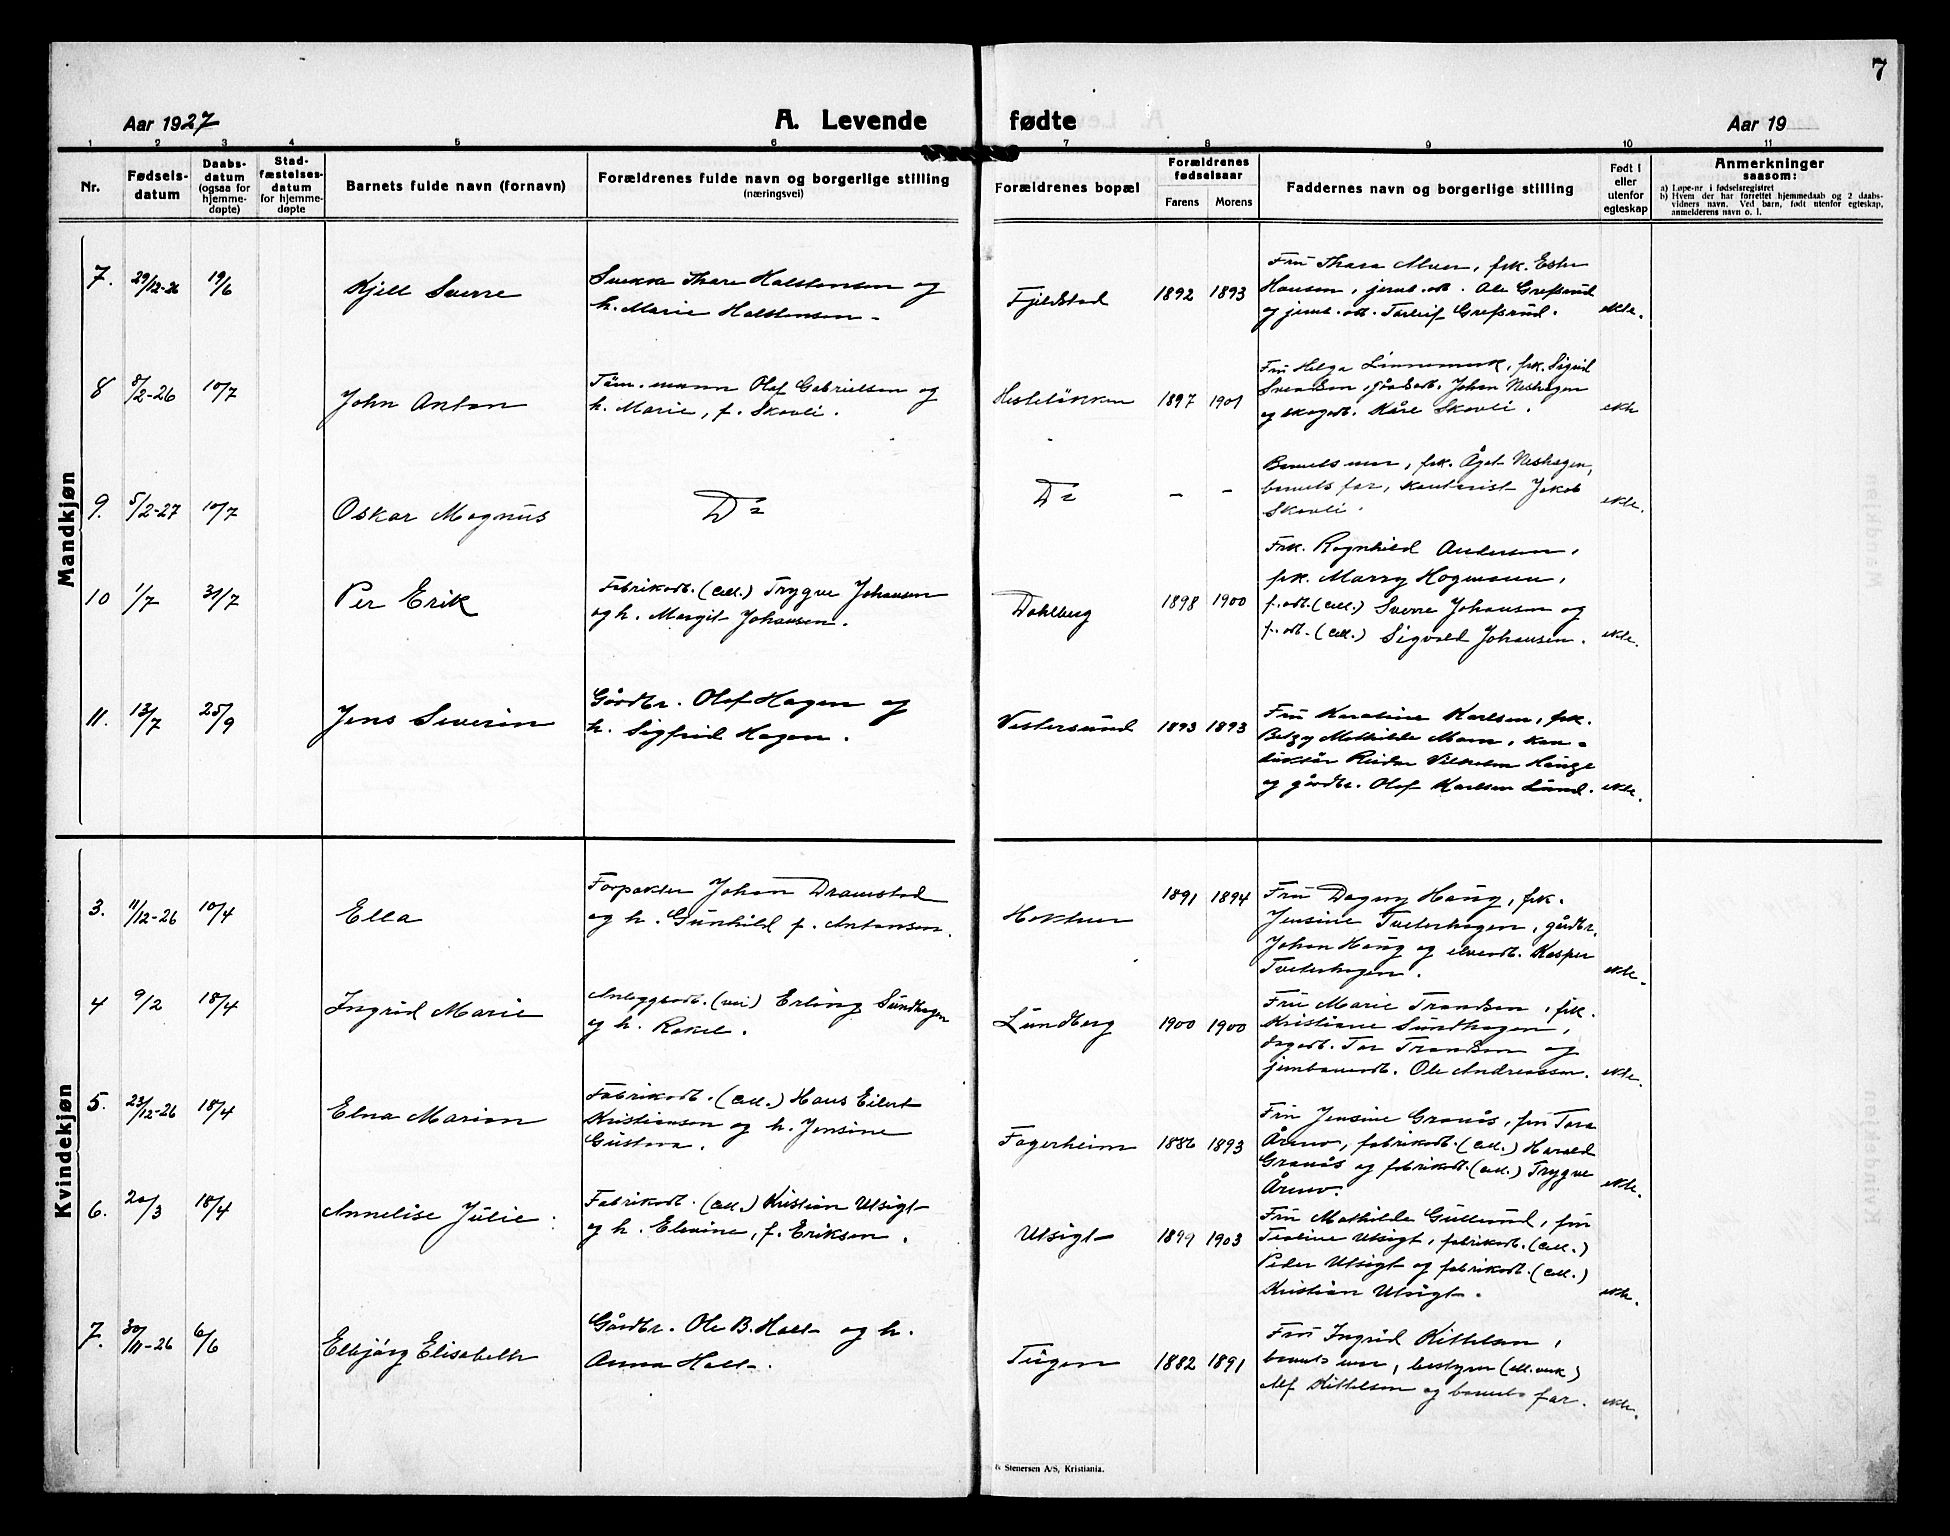 7
Aar 1927
A. Levende fødte
Aar 19
1 2 3 4 5 6 7 8 9 10 11
Nr.
Fødsels-
datum
Daabs-
datum
(ogsaa for
hjemme-
døpte)
Stad-
fæstelses-
datum
for hjemme-
døpte
Barnets fulde navn (fornavn)
Forældrenes fulde navn og borgerlige stilling
(næringsvei)
Forældrenes bopæl
Forældrenes
fødselsaar
Farens Morens
Faddernes navn og borgerlige stilling
Født i
eller
utenfor
egteskap
Anmerkninger
saasom:
a) Løpe-nr i fødselsregistret
b) Hvem der har forrettet hjemmedaab og 2 daabs-
vidners navn. Ved barn, født utenfor egteskap,
anmelderens navn o. l.
Mandkjøn
7. 29/12-26 19/6 Kjell Sverre
Thore Halstensen og
h. Marie Halstensen.
Fjeldstad 1892 1893
Fru Thora frk. Ester
Hansen, jernb.arb. Ole Grefsrud
og jernb.arb. Torleif Grefsrud. ekte.
8 8/2-26 10/7 John Anton
Töm.mann Olaf Gabrielsen og
h. Marie, f. Skovli.
Hesteløkken 1897 1901
Fru Helga Linnemork, frk. Sigrid
Svendsen, Johan Neshagen
og skogarb. Kåre Skovli. ekte
9. 5/2-27 10/7 Oskar Magnus
Do
Do - -
Barnets mor, frk. Ågot Neshagen,
barnets far, kontorist Jakob
Skovli. ekte.
10 1/7 31/7 Per Erik
Fabrikarb. (cell.) Trygve Johansen
og h. Margit Johansen.
Dahlberg 1898 1900
Frk. Ragnhild Andersen,
frk. Marry Hogmoen,
f.arb. (cell.) Sverre Johansen og
f.arb. (cell.) Sigvald Johansen. ekte.
11. 13/7 25/9 Jens Severin
Gårdbr. Olaf Hagen og
h. Sigfrid Hagen.
Vestersund 1893 1893
Fru Karoline Karlsen, frk.
Betzy Mathilde Moen, kon-
duktör Reidar Vilhelm Hauge
og gårdbr. Olaf Karlsen Lund. ekte.
Kvindekjøn
3. 11/12-26 10/4 Ella
Forpakter Johan Dramstad
og h. Gunhild f. Antonsen.
1891 1894
Fru Dagny Haug, frk.
Jensine Tveterhagen, gårdbr.
Johan Haug og elvearb. Kasper
Tveterhagen. ekte.
4 9/2 18/4 Ingrid Marie
Anleggsarb. (vei) Erling Sundhagen
og h. Rakel.
Lundberg 1900 1900
Fru Marie Trondsen, frk.
Kristiane Sundhagen,
dagarb. Tor Trondsen og
jernbanearb. Ole Andreassen. ekte.
5. 23/12-26 18/4 Elna Marion
Fabrikarb. (cell.) Hans Eilert
Kristiansen og h. Jensine
Gustava.
Fagerheim 1886 1893
Fru Jensine Granås, fru Tora
Årmo, fabrikarb. (cell.) Harald
Granås og fabrikarb. (cell.) Trygve
Årmo. ekte.
6. 20/3 18/4 Annelise Julie
Fabrikarb. (cell.) Kristian Utsigt
og h. Elevine, f. Eriksen.
Utsigt 1899 1903
Fru Mathilde Gullerud, fru
Teoline Utsigt, fabrikarb. (cell.)
Peder Utsigt og fabrikarb. (cell.)
Kristian Utsigt. ekte.
7. 30/11-26 6/6 Elbjörg Elisabeth
Gårdbr. Ole B. Holt og h.
Anna Holt.
Tugen 1882 1891
Fru Ingrid Kittelsen,
barnets mor, bestyrer
Alf Kittelsen og barnets far. ekte.
& Stenersen A/S, Kristiania.